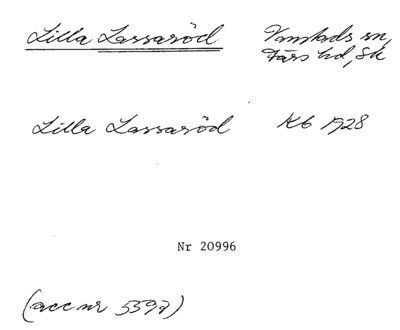 Lilla Lassaröd Vanstads sn,
Färs hd, Sk
Lilla Lassaröd Kb 1928
Nr 20996
(acc nr 5397)